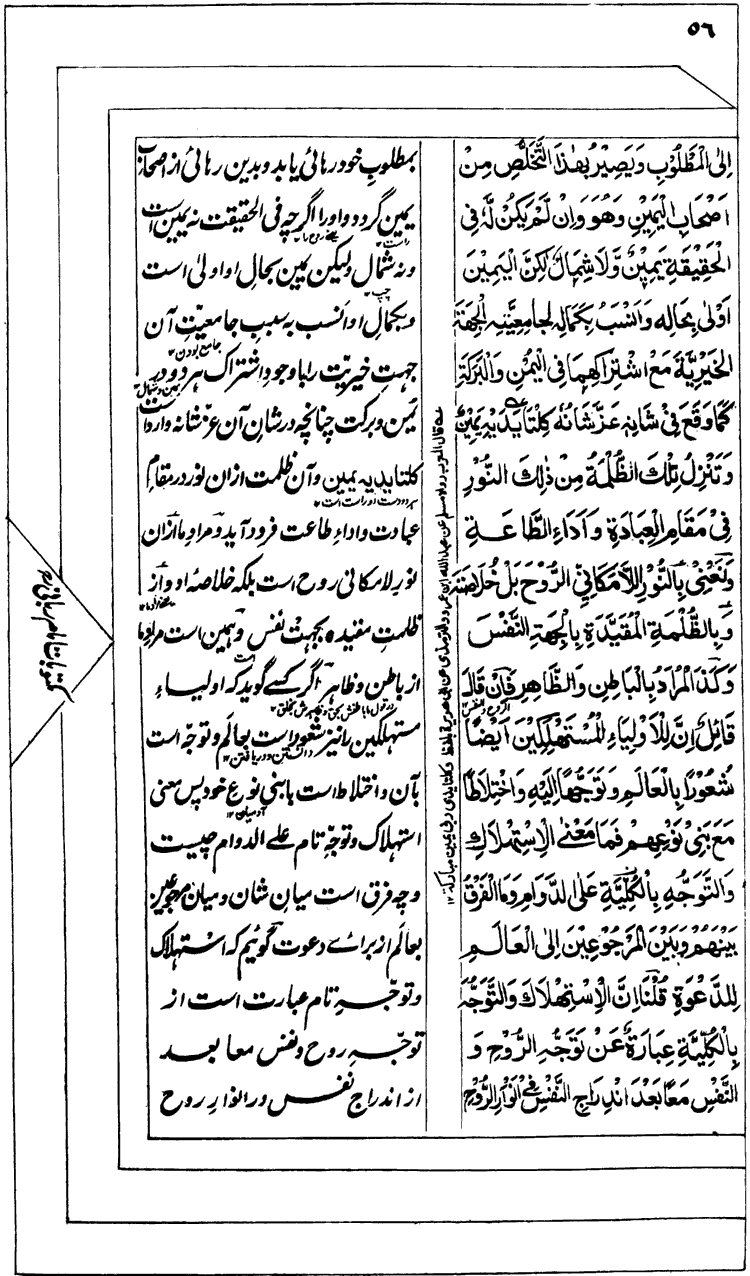 ٥٦
اِلَى الْمَطْلُوْبِ وَيَصِيْرُ بِهٰذَا التَّخَلُّصِ مِنْ
اَصْحَابِ الْيَمِيْنِ وَهُوَ وَاِنْ لَمْ يَكُنْ لَهٗ فِى
الْحَقِيْقَةِ يَمِيْنٌ وَّلَا شِمَالٌ لٰكِنَّ الْيَمِيْنَ
اَوْلٰى بِحَالِهٖ وَاَنْسَبُ بِكَمَالِهٖ لِجَامِعِيَّتِهِ الْجِهَةَ
الْخَيْرِيَّةَ مَعَ اشْتِرَاكِهِمَا فِى الْيُمْنِ وَالْبَرَكَةِ
كَمَا وَقَعَ فِىْ شَانِهٖ عَزَّ شَانُهٗ كِلْتَا يَدَيْهِ يَمِيْنٌ
وَتَنَزُّلُ تِلْكَ الظُّلْمَةِ مِنْ ذٰلِكَ النُّوْرِ
فِىْ مَقَامِ الْعِبَادَةِ وَاَدَاءِ الطَّاعَةِ
وَنَعْنِىْ بِالنُّوْرِ اللَّامَكَانِىِّ الرُّوْحَ بَلْ خُلَاصَتَهٗ
وَبِالظُّلْمَةِ الْمُقَيَّدَةِ بِالْجِهَةِ النَّفْسَ
وَكَذَا الْمُرَادُ بِالْبَاطِنِ وَالظَّاهِرِ فَاِنْ قَالَ
قَائِلٌ اِنَّ لِلْاَوْلِيَاءِ الْمُسْتَهْلِكِيْنَ اَيْضًا
شُعُوْرًا بِالْعَالَمِ وَتَوَجُّهًا اِلَيْهِ وَاخْتِلَاطًا
مَعَ بَنِىْ نَوْعِهِمْ فَمَا مَعْنَى الْاِسْتِهْلَاكِ
وَالتَّوَجُّهِ بِالْكُلِّيَّةِ عَلَى الدَّوَامِ وَمَا الْفَرْقُ
بَيْنَهُمْ وَبَيْنَ الْمَرْجُوْعِيْنَ اِلَى الْعَالَمِ
لِلدَّعْوَةِ قُلْنَا اِنَّ الْاِسْتِهْلَاكَ وَالتَّوَجُّهَ
بِالْكُلِّيَّةِ عِبَارَةٌ عَنْ تَوَجُّهِ الرُّوْحِ وَ
النَّفْسِ مَعًا بَعْدَ انْدِرَاجِ النَّفْسِ فِىْ اَنْوَارِ الرُّوْحِ
بمطلوبِ خود رہائی یابد و بدین رہائی از اصحابِ
یمین گردد و او را اگرچہ فی الحقیقت نہ یمین است
و نہ شمال ولیکن یمین بحالِ او اولیٰ است
و بکمالِ او انسب بہ سببِ جامعیتِ آن
جہتِ خیریّت را با وجودِ اشتراکِ ہر دو در
یُمن و برکت چنانچہ در شانِ آن عزّ شانہ وارد است
کلتا یدیہ یمین و آن ظلمت ازان نور در مقامِ
عبادت و اداءِ طاعت فرود آید و مراد ما ازان
نورِ لامکانی روح است بلکہ خلاصۂ او و از
ظلمتِ مقیدہ بجہت نفس و ہمین است مراد ما
از باطن و ظاہر اگر کسے گوید کہ اولیاءِ
مستہلکین را نیز شعور است بعالم و توجّہ است
بآن و اختلاط است با بنی نوعِ خود پس معنی
استہلاک و توجّہِ تام علے الدوام چیست
و چہ فرق است میانِ شان و میان مرجوعین
بعالم از براے دعوت گوئیم کہ استہلاک
و توجّہِ تام عبارت است از
توجّہِ روح و نفس معا بعد
از اندراجِ نفس در انوارِ روح